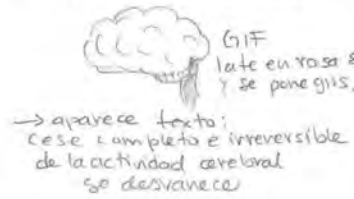 GIF
late en rosa
y se pone gris,
→ aparece texto:
cese completo e irreversible
de la actividad cerebral
se desvanece